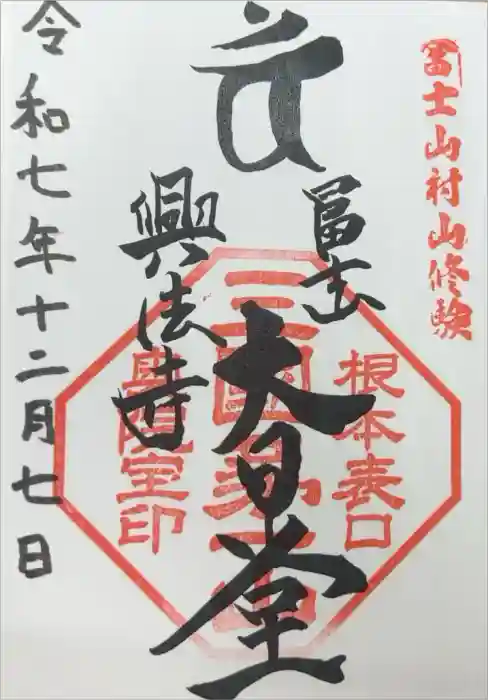 冨士山村山修験
冨士
大日堂
興法寺
根本表口
三國第一山
興法寺印
令和七年十二月七日